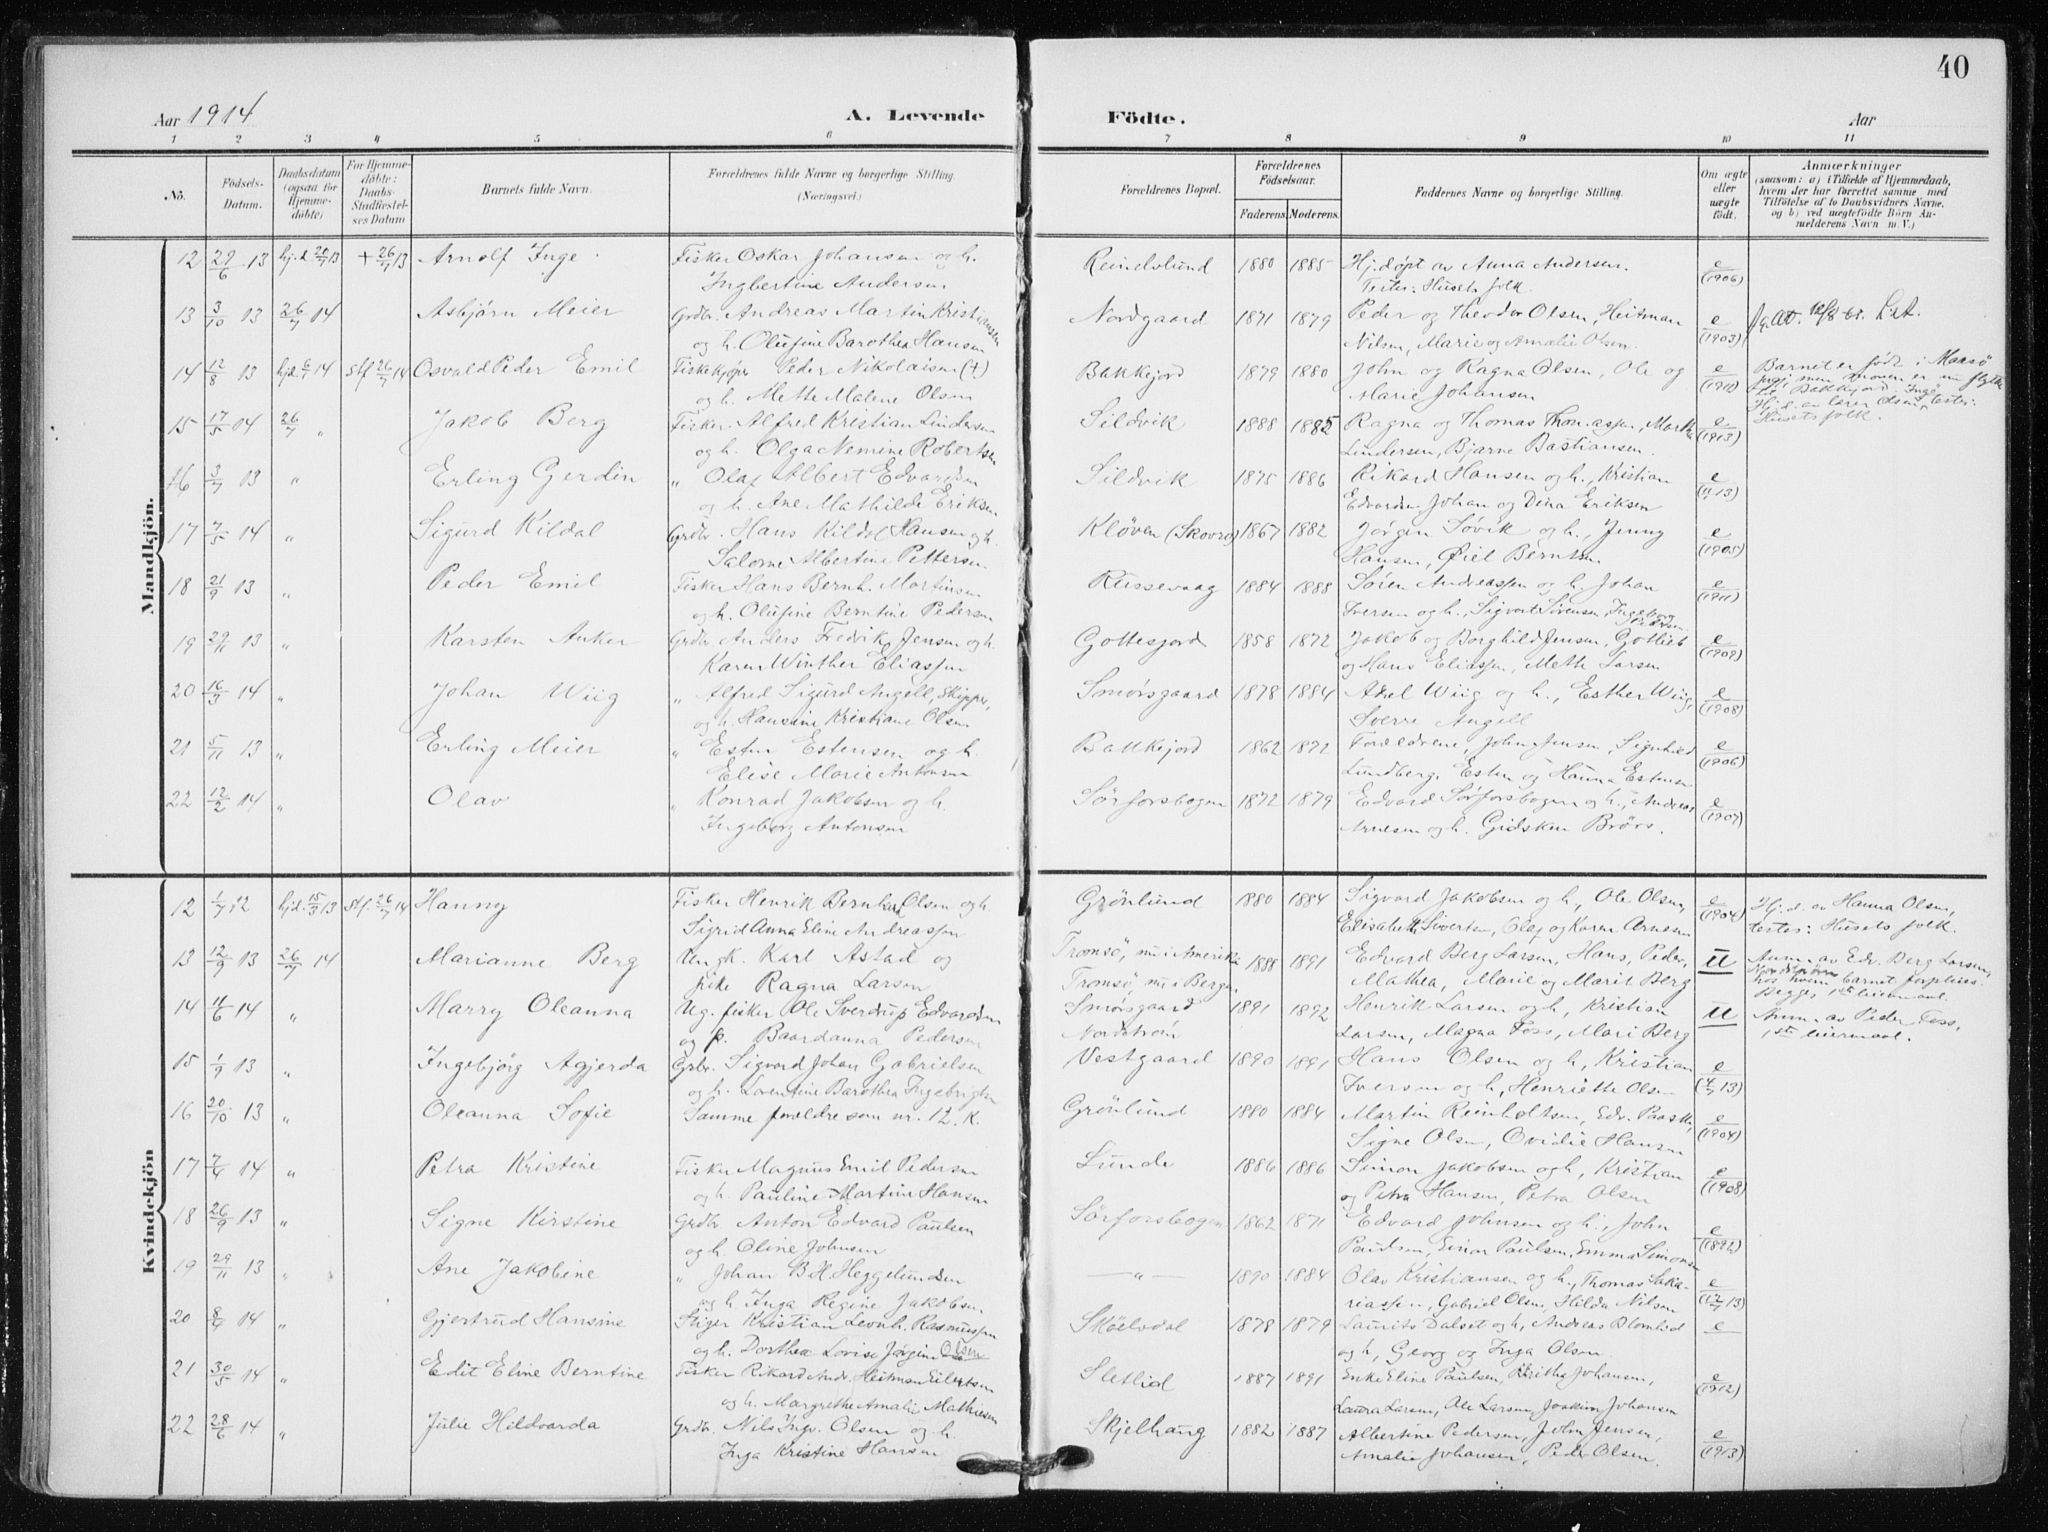 40
Aar 1914
A. Levende Födte.
Aar
1 2 3 4 5 6 7 8 9 10 11
No.
Födsels-Datum.
Daabsdatum (ogsaa for Hjemme-döbte)
For Hjemme-döbte: Daabs-Stadfæstel-ses Datum
Barnets fulde Navn.
Forældrenes fulde Navne og borgerlige Stilling. (Næringsvei.)
Forældrenes Bopæl.
Forældrenes Födselsaar.
Faderens. Moderens.
Faddernes Navne og borgerlige Stilling.
Om ægte eller uægte födt.
Anmærkninger
(saasom: a) i Tilfælde af Hjemmedaab,
hvem der har forrettet samme med
Tilföielse af to Daabsvidners Navne,
og b) ved uægtefödte Börn An-
melderens Navn m. V.)
Mandkjön.
12 29/6 13 hj.d 20/7 13 + 26/7 13 Arnolf Inge Fisker Oskar Johansen og h. Reindvlund 1880 1885 Hj.døpt av Anna Andersen. e/(1906)
Ingbertine Andersen Testes: Husets folk.
13 3/10 13 26/7 14 Asbjørn Meier Grdbr. Andreas Martin Kristiansen Nordgaard 1871 1879 Peder og Theodor Olsen, Heitman e/(1903)
og h. Olufine Barothea Hansen Nilsen, Marie og Amalie Olsen.
14 12/8 13 hj.d 6/1 14 stf 26/7 14 Osvald Peder Emil Fiskekjøper Peder Nikolaisen (+) Bakkejord 1879 1880 John og Ragna Olsen, Ole og e/(1910) Barnet er født i Maasø
og h. Mette Malene Olsen Marie Johansen
Husets folk.
15 17/5 14 26/7 " Jakob Berg Fisker Alfred Kristian Lindersen Sildvik 1888 1885 Ragna og Thomas Thomassen, Martha e/(1913)
og h. Olga Nemine Robertsen Lindersen, Bjarne Bastiansen.
16 3/7 13 " Erling Gerdin " Olaf Albert Edvardsen Sildvik 1875 1886 Rikard Hansen og h., Kristian
og h. Ane Mathilde Eriksen Edvardsen Johan og Dina Eriksen
17 7/5 14 " Sigurd Kildal Grdbr. Hans Kildal Hansen og h. Kløven (Skovro) 1867 1882 Jørgen Søvik og h., Jenny e/(1905)
Salome Albertine Pettersen Hansen, Øiel Berntsen
18 21/9 13 " Peder Emil Fisker Hans Bernh. Martinsen Russevaag 1884 1888 Søren Andreassen og h. Johan e/(1911)
og h. Olufine Berntine Pedersen Iversen og h., Sigvart Sörensen, Ingeborg Pedersen.
19 29/11 13 " Karsten Anker Grdbr Anders Fredrik Jensen og h. Gottesjord 1858 1872 Jakob og Borghild Jensen, Gottlieb e/(1909)
Karen Winther Eliassen og Hans Eliassen, Mette Larsen
20 16/3 14 " Johan Wiig " Alfred Sigurd Angell, Skipper, Smørsgaard 1878 1884 Axel Wiig og h., Esther Wiig, e/(1908)
og h. Hansine Kristiane Olsen Sverre Angell
21 5/11 13 " Erling Meier " Esten Estensen og h. Bakkejord 1862 1872 Forældrene, John Jensen, Signhild e/(1906)
Elise Marie Antonsen Lundberg, Esten og Hanna Estensen
22 12/2 14 " Olav " Konrad Jakobsen og h. Sörforsbogen 1872 1879 Edvard Sörforsbogen og h., Andreas e/(1907)
Ingeborg Antonsen Arnesen og h. Gidsken Brörs.
Kvindekjön
12 1/7 12 hj.d. 15/3 13 stf. 26/7 14 Hanny Fisker Henrik Bernhard Olsen og h. Grönlund 1880 1884 Sigvard Jakobsen og h, Ole Olsen, e/(1904) Hj.d. av Hanna Olsen,
Sigrid Anna Eline Andreassen Elisabeth Sivertsen, Olaf og Karen Arnesen testes: Husets folk.
13 12/9 13 26/7 14 Marianne Berg Ungk. Karl Astad og Tromsö, nu i Amerika 1888 1891 Edvard Berg Larsen, Hans, Peder, U Anm. av Edv. Berg Larsen,
pike Ragna Larsen Tromsö, nu i Bergen Mathea, Marie og Marit Berg hos hvem barnet forpleies.
Begges 1ste leiermaal.
14 11/6 14 " Marry Oleanna Ug. fisker Ole Sverdrup Edvardsen Smörsgaard 1891 1892 Henrik Larsen og h, Kristian U Anm. av Peder Foss,
og p. Baardanna Pedersen Nordstrøm Larsen, Magna Foss, Mari Berg 1ste leiermaal.
15 1/9 13 " Ingebjörg Agjerda Grbr. Sigvard Johan Gabrielsen Vestgaard 1890 1891 Hans Olsen og h, Kristian
og h. Lorentine Barothea Ingebrigtsen Iversen og h, Henriette Olsen
16 20/10 13 " Oleanna Sofie Samme forældre som nr. 12. K. Grönlund 1880 1884 Martin Reinholtsen, Edv. Paaske, e/(1904)
Signe Olsen, Ovidie Hansen
17 7/4 14 " Petra Kristine Fisker Magnus Emil Pedersen Lunde 1886 1886 Simon Jakobsen og h, Kristian e/(1908)
og h. Pauline Martine Hansen og Petra Hansen, Petra Olsen
18 26/9 13 " Signe Kirstine Grdbr Anton Edvard Paulsen Sörforsbogen 1862 1871 Edvard Johnsen og h., John e/(1892)
og h. Oline Johnsen Paulsen, Einar Paulsen, Emma Simonsen
19 29/11 13 " Ane Jakobine " Johan B H Heggelundsen — " — 1890 1884 Olav Kristiansen og h., Thomas Saka-
og h. Inga Regine Jakobsen riassen, Gabriel Olsen, Hilda Nilsen
20 8/4 14 " Gjertrud Hansine Stiger Kristian Leonh. Rasmussen Sköelvdal 1878 1879 Laurits Dalset og h, Andreas Blomlid e
og h. Dorthea Lovise Jörgine Olsen og h, Georg og Inga Olsen
21 30/5 14 " Edit Eline Berntine Fisker Rikard Andr. Heitman Eilertsen Sletlid 1887 1891 Enke Eline Paulsen, Johansen, e/(1912)
og h. Margrethe Amalie Mathiesen Laura Larsen, Ole Larsen, Joakim Johansen
22 28/6 14 " Julie Hildvarda Grdbr. Nils Ingv. Olsen og h. Skjelhaug 1882 1887 Albertine Pedersen, John Jensen, e/(1913)
Inga Kristine Hansen Amalie Johansen, Peder Olsen.